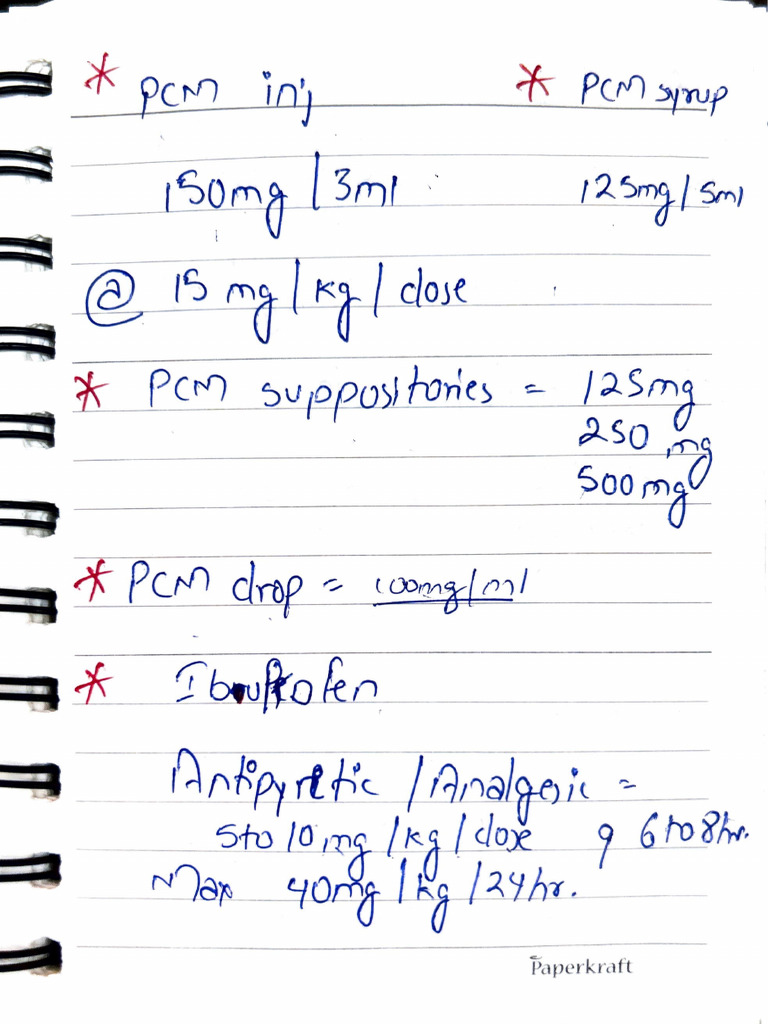 * PCM inj * PCM syrup
150mg / 3ml 125mg / 5ml
@ 15 mg / kg / dose
* PCM suppositories = 125mg
250 mg
500mg
* PCM drop = 100mg/ml
* Ibuprofen
Antipyretic / Analgesic =
5 to 10 mg / kg / dose q 6 to 8hr.
Max 40mg / kg / 24hr.
Paperkraft